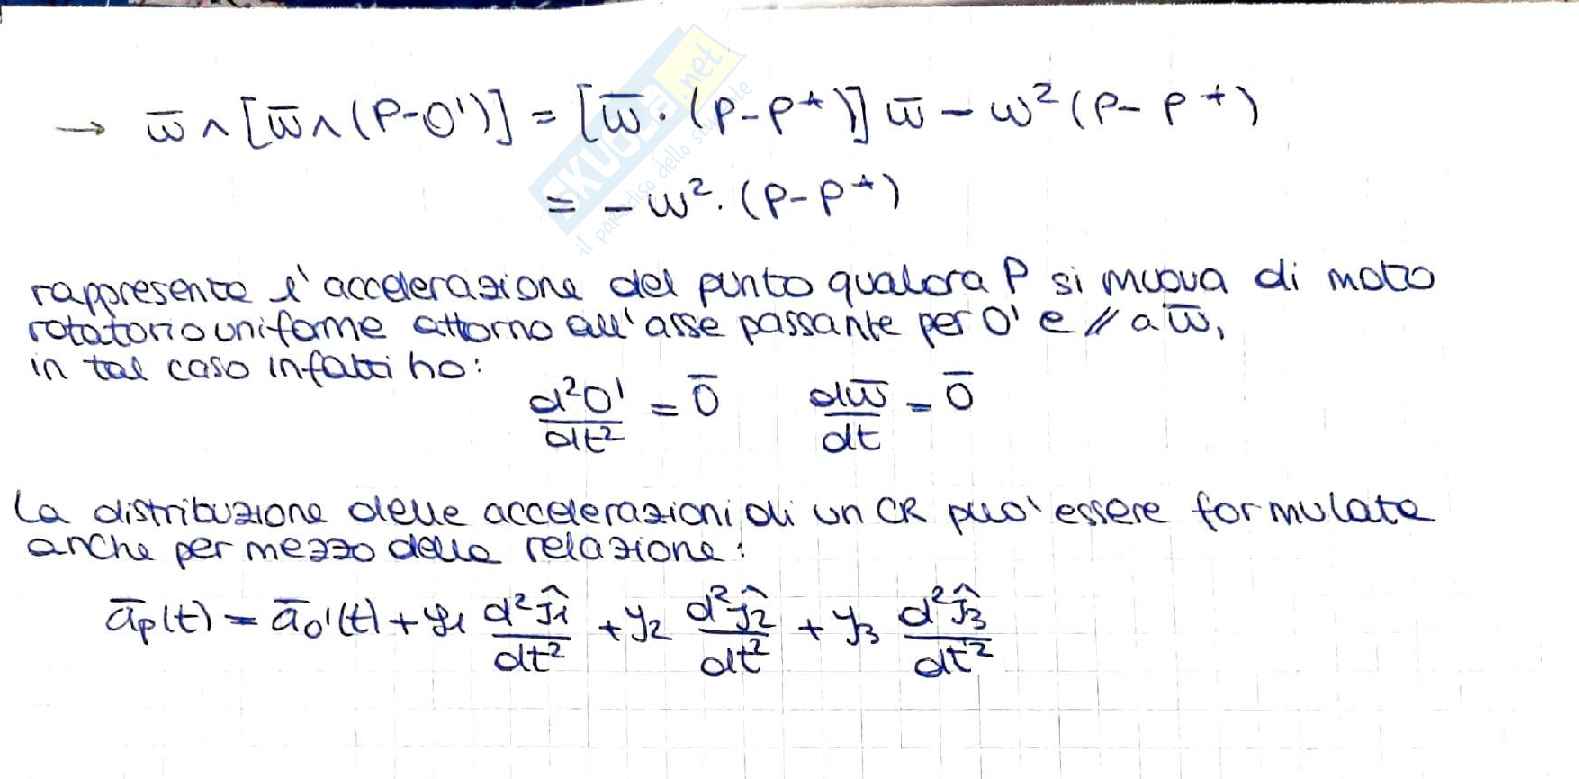 → ω̅ ∧ [ω̅ ∧ (P-O')] = [ω̅ · (P-P*)] ω̅ - ω² (P-P*)
= -ω² · (P-P*)
SKUOLA.net
il paradiso dello studente
rappresenta l'accelerazione del punto qualora P si muova di moto
rotatorio uniforme attorno all'asse passante per O' e // a ω̅,
in tal caso infatti ho:
d²O'/dt² = 0̅    dω̅/dt = 0̅
La distribuzione delle accelerazioni di un CR puo' essere formulata
anche per mezzo della relazione:
a̅p(t) = a̅o'(t) + y₁ d²ĵ₁/dt² + y₂ d²ĵ₂/dt² + y₃ d²ĵ₃/dt²